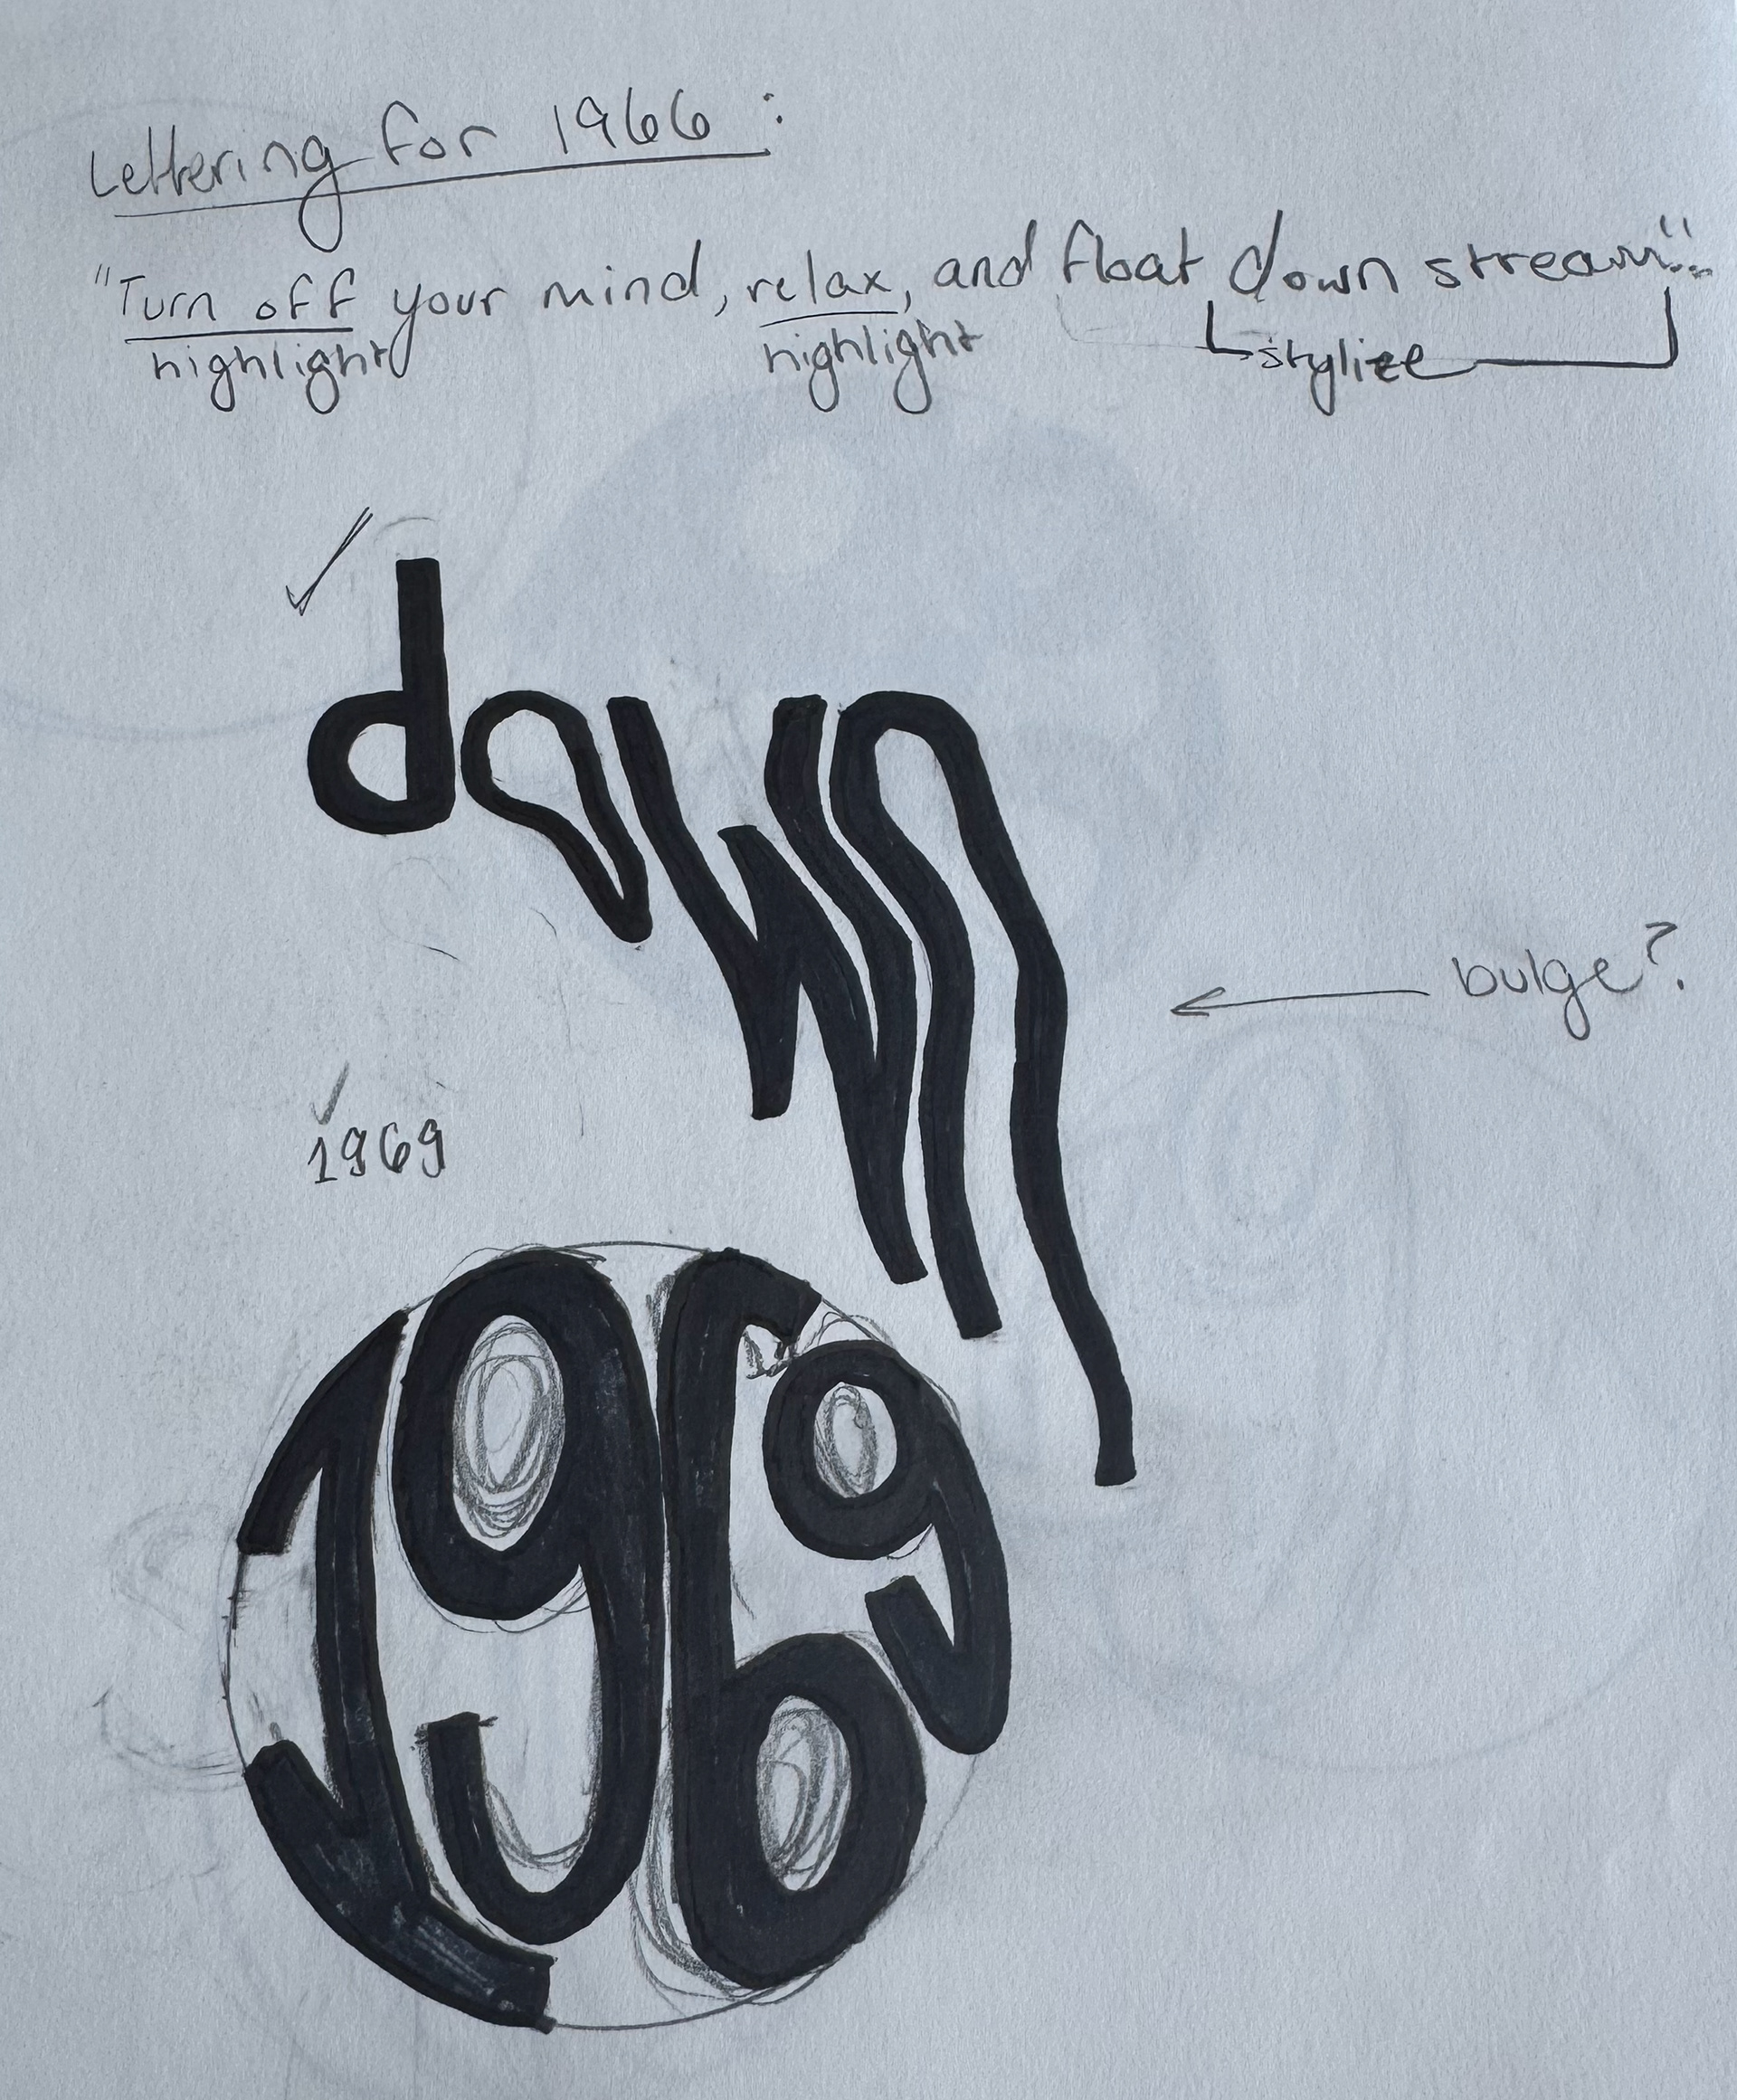 Lettering for 1966:
"Turn off your mind, relax, and float down stream..."
highlight highlight stylize
down
bulge?
1969
1969